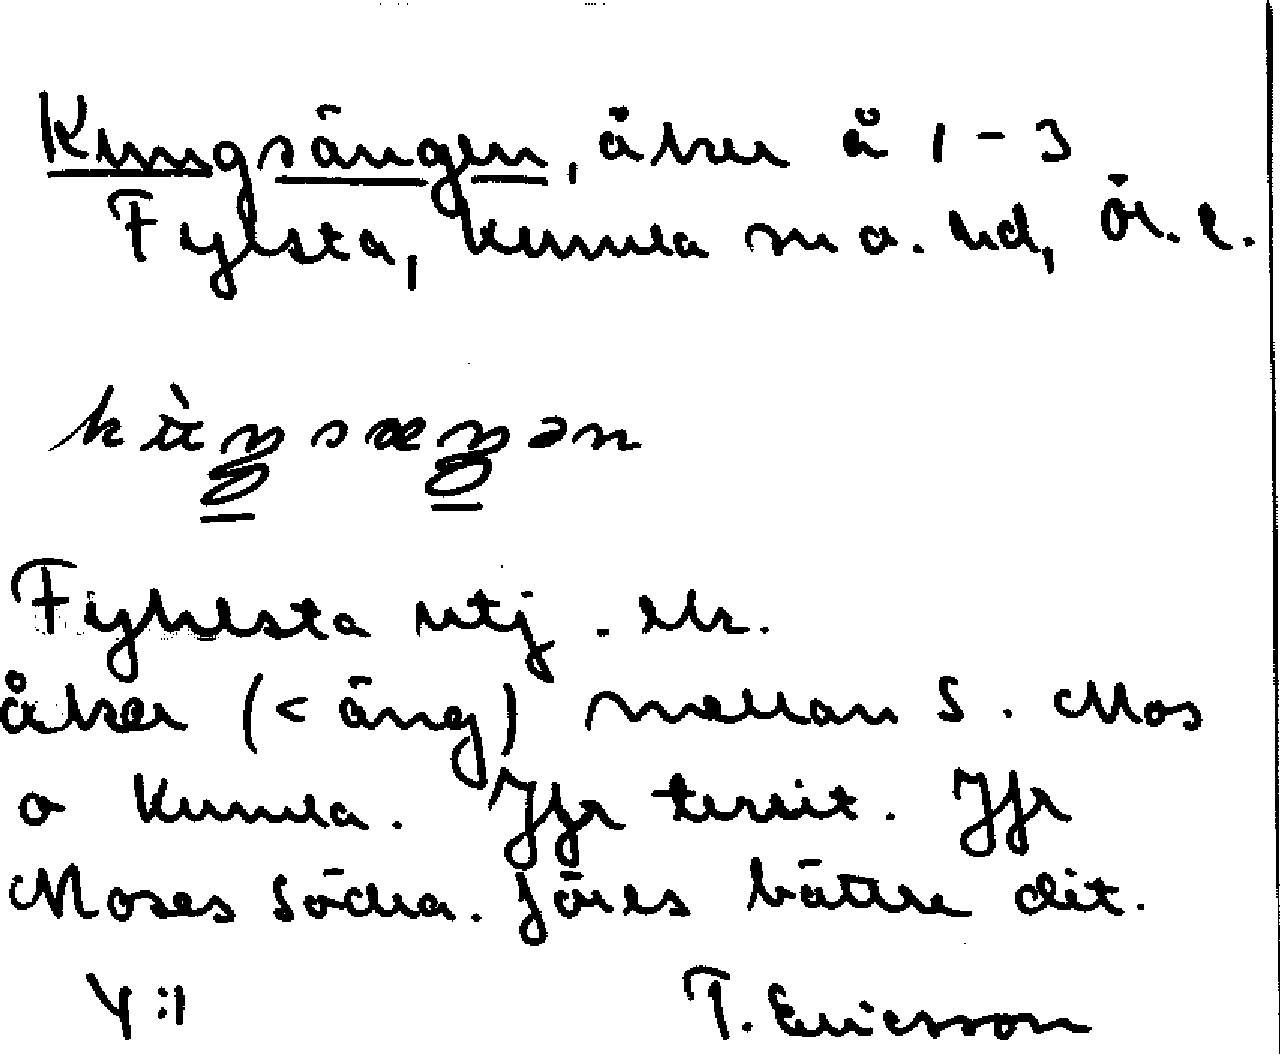 Kungsängen, åker å 1-3
Fylsta, Kumla sn o. hd, Ör. l.
Fylsta utj. ek.
åker (< äng) mellan S. Mos
o Kumla. Jfr territ. Jfr
Moses Södra. föres bättre dit.
Y:1
T. Ericsson